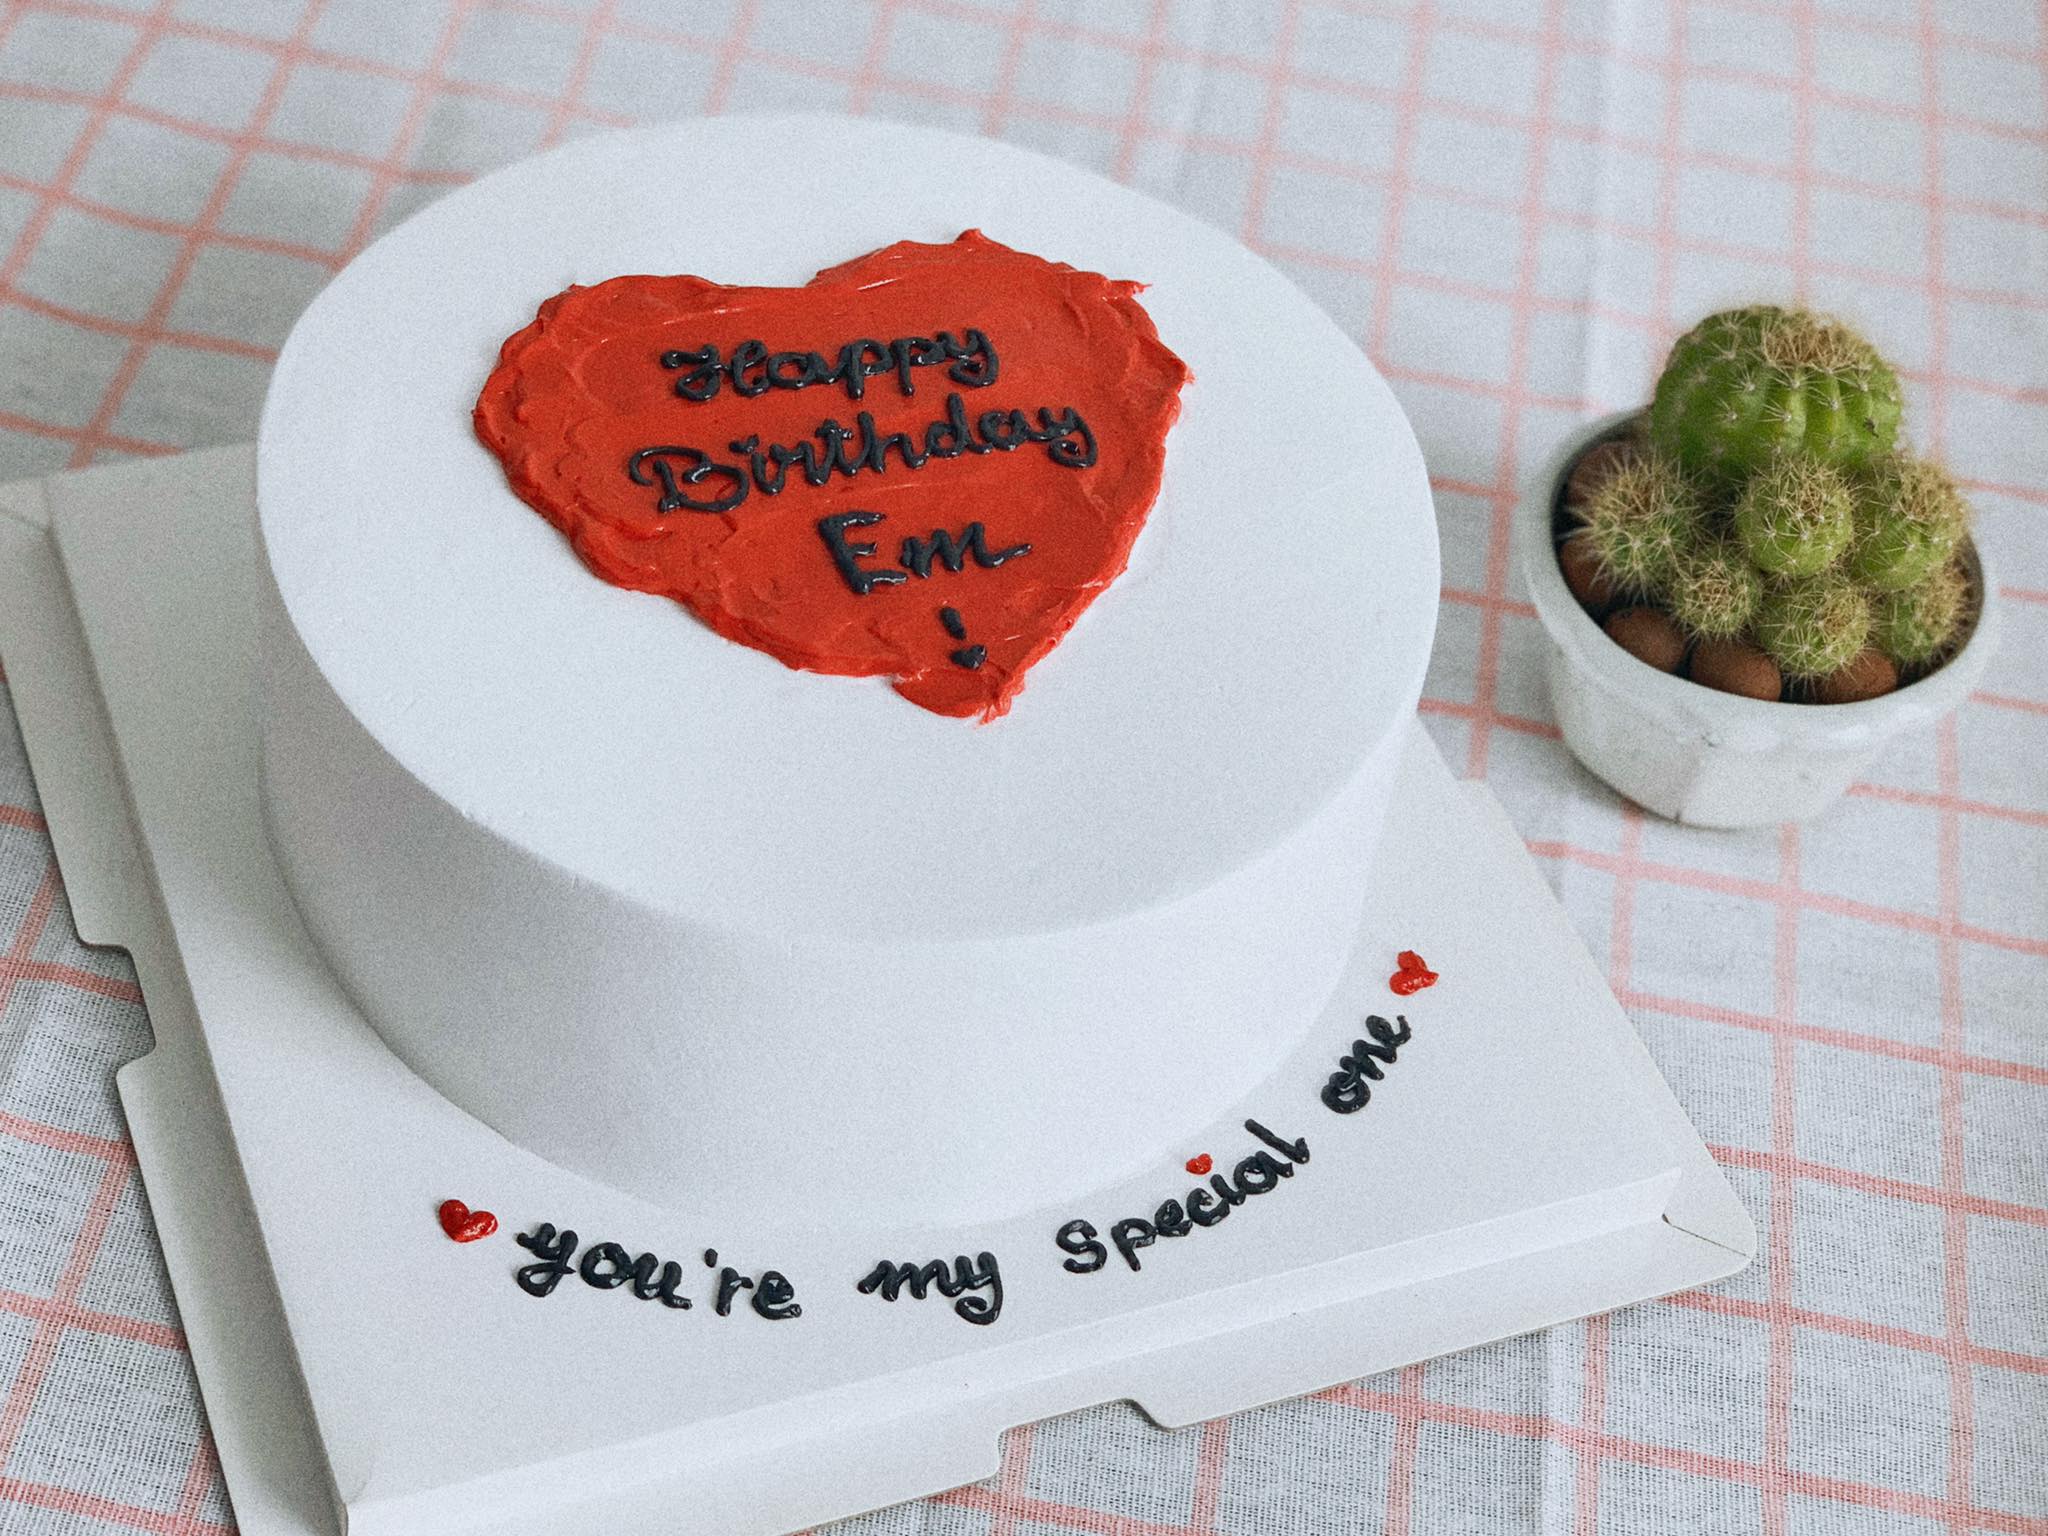 Happy
Birthday
Em
!
you're my Special one